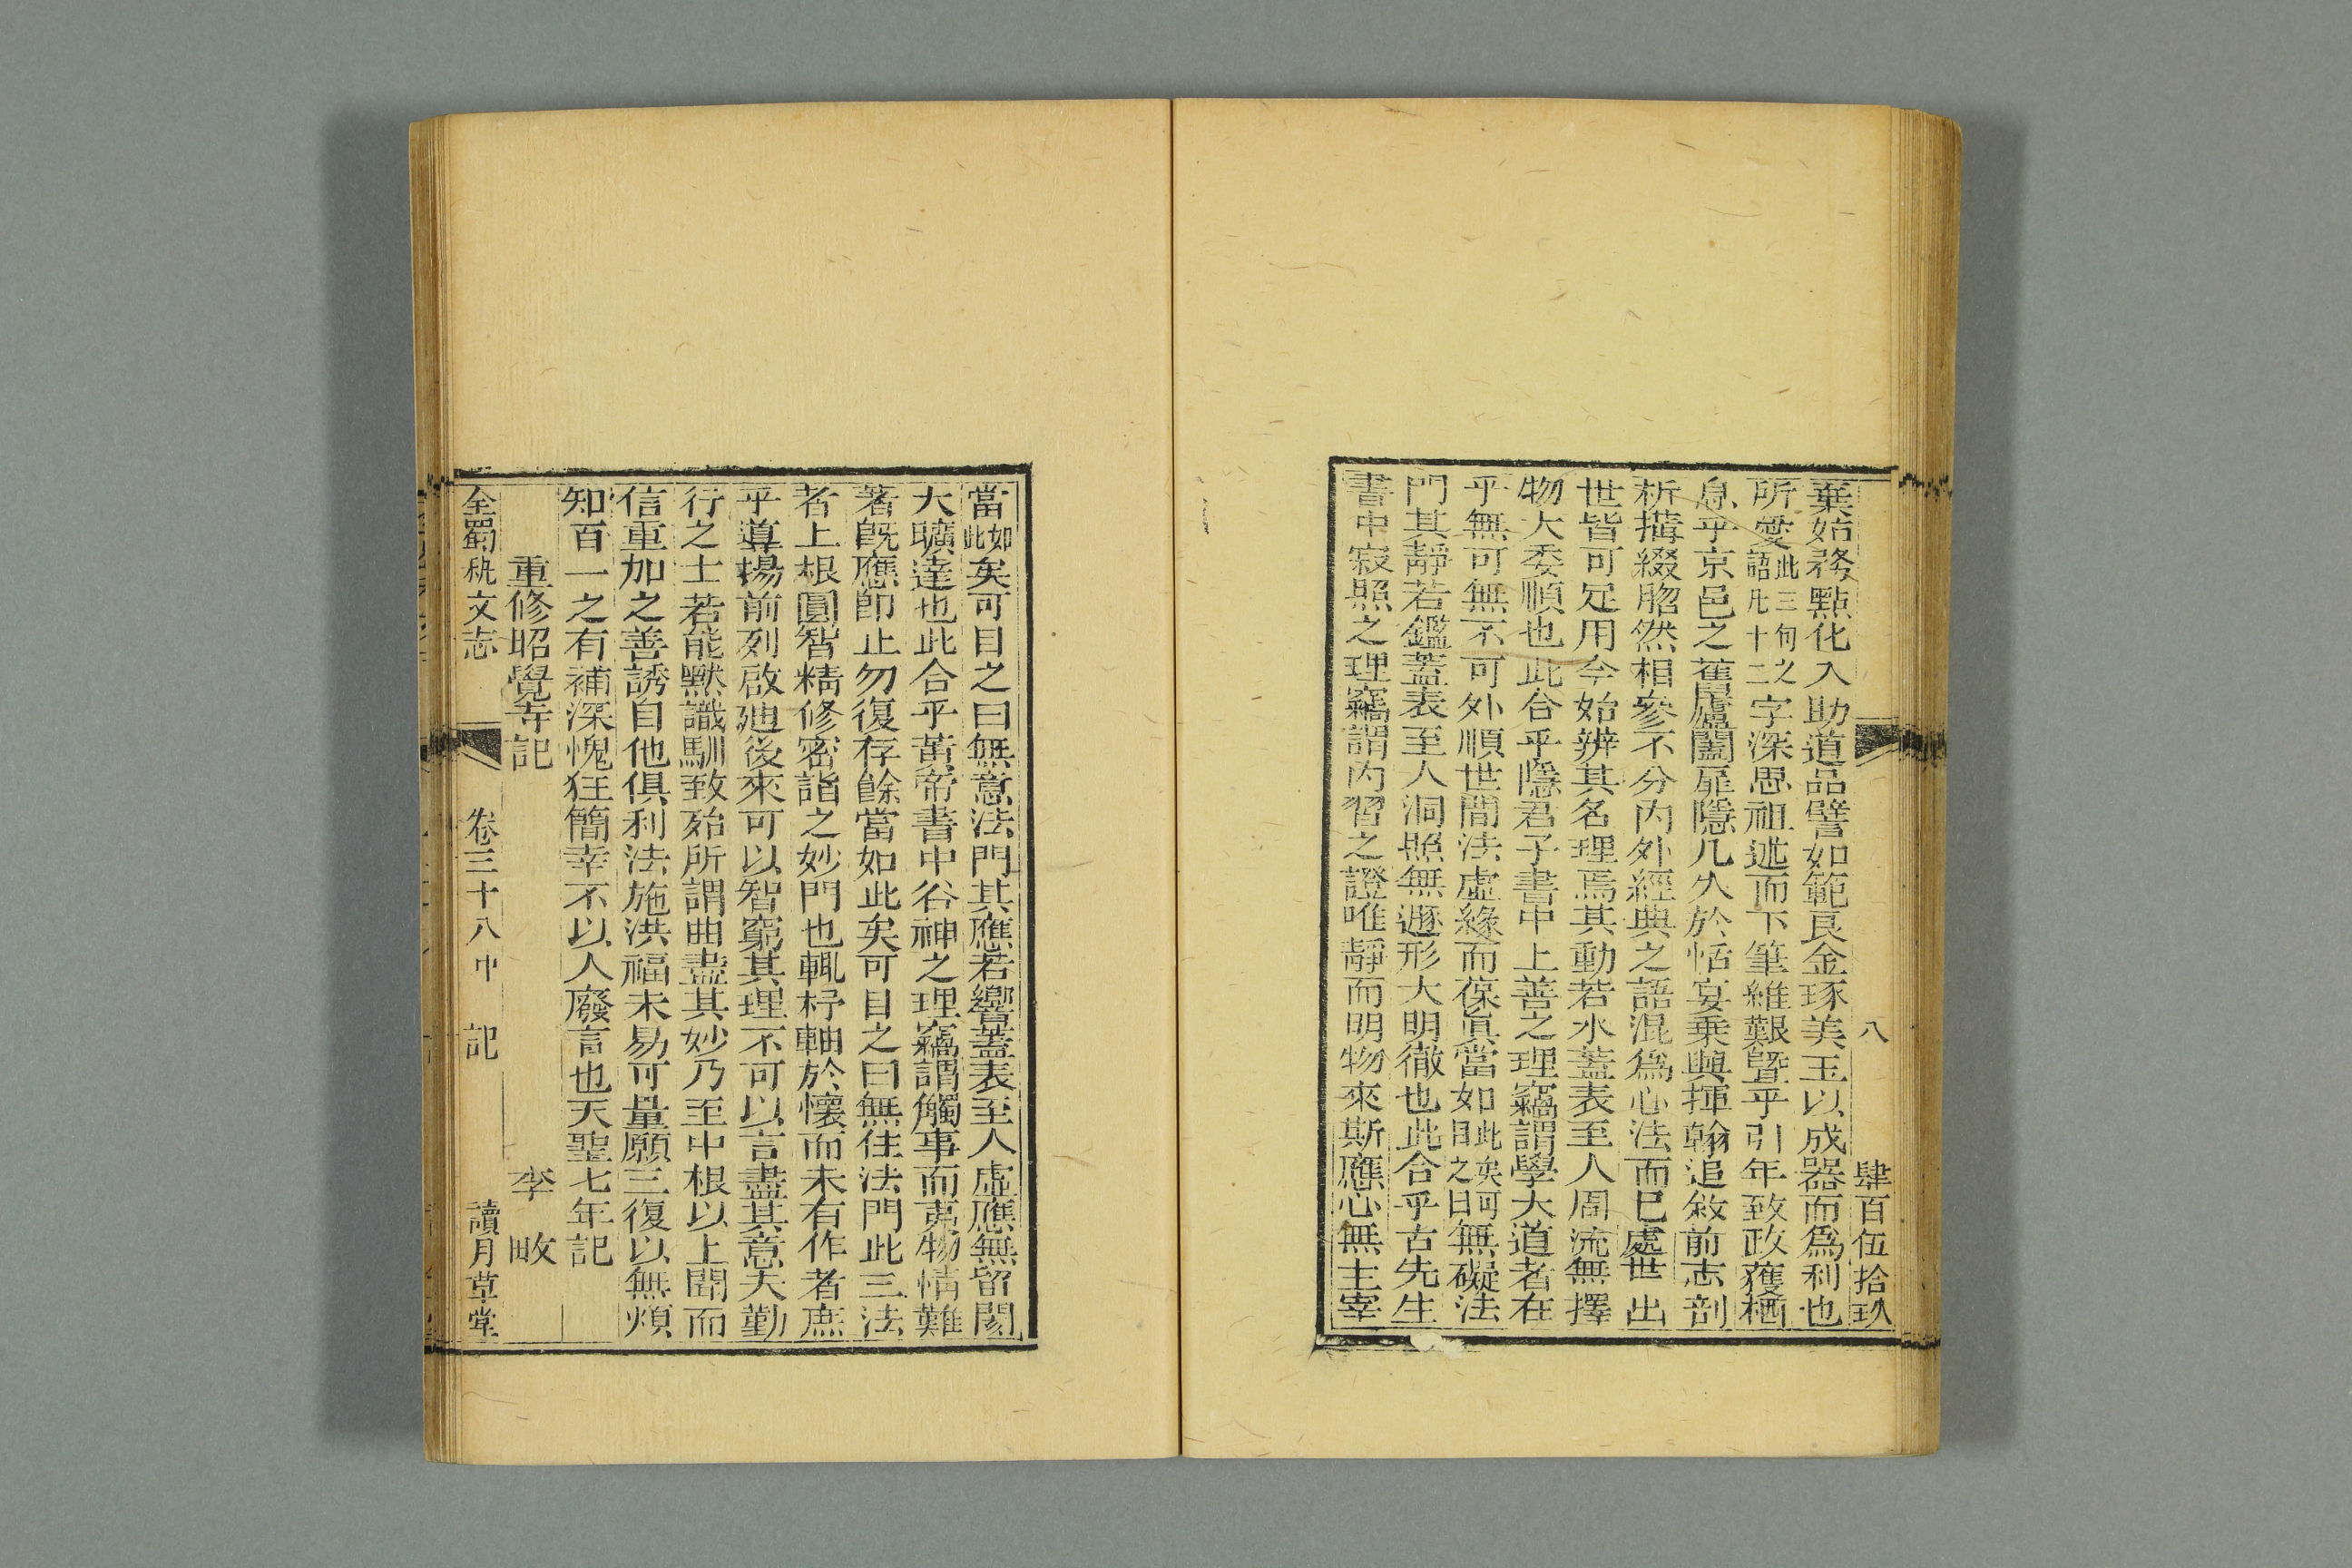 八　肆百伍拾玖
棄始務點化入助道品譬如範良金琢美玉以成器而爲利也
所愛此三句之語凡十二字深思祖述而下筆維艱曁乎引年致政獲栖
息乎京邑之舊廬闔扉隱几久於恬宴乗興揮翰追敘前志剖
析搆綴脗然相參不分内外經典之語混爲心法而已處世出
世皆可足用今始辨其名理焉其動若水蓋表至人周流無擇
物大委順也此合乎隱君子書中上善之理竊謂學大道者在
乎無可無不可外順世間法虛緣而葆眞當如此矣可目之曰無礙法
門其靜若鑑蓋表至人洞照無遯形大明徹也此合乎古先生
書中寂照之理竊謂内習之證唯靜而明物來斯應心無主宰
當如此矣可目之曰無意法門其應若響蓋表至人虛應無留閡
大曠達也此合乎黃帝書中谷神之理竊謂觸事而荑物情難
著旣應卽止勿復存餘當如此矣可目之曰無住法門此三法
者上根圓智精修密詣之妙門也輒杼軸於懷而未有作者庶
乎導揚前列啟廸後來可以智窮其理不可以言盡其意夫勤
行之士若能黙識馴致殆所謂曲盡其妙乃至中根以上聞而
信重加之善誘自他俱利法施洪福未易可量願三復以無煩
知百一之有補深愧狂簡幸不以人廢言也天聖七年記
重修昭覺寺記　李畋
全蜀秇文志　卷三十八中　記　讀月草堂